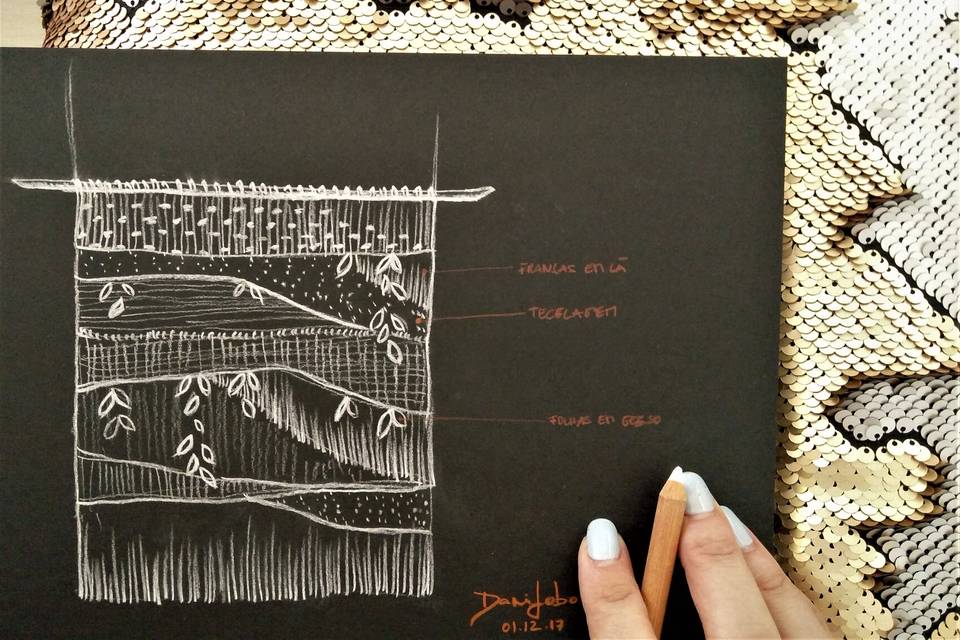 FRANCAS EM LÃ
TECELAGEM
FOLHAS EM GESSO
Dani Lobo
01.12.17